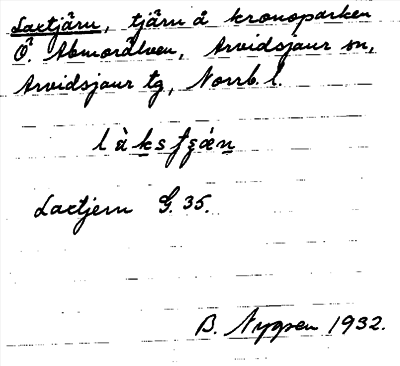 Laxtjärn, tjärn å kronoparken
Ö. Abmorälven, Arvidsjaur sn,
Arvidsjaur tg, Norrb. l.
Laxtjern G. 35.
B. Nygren 1932.